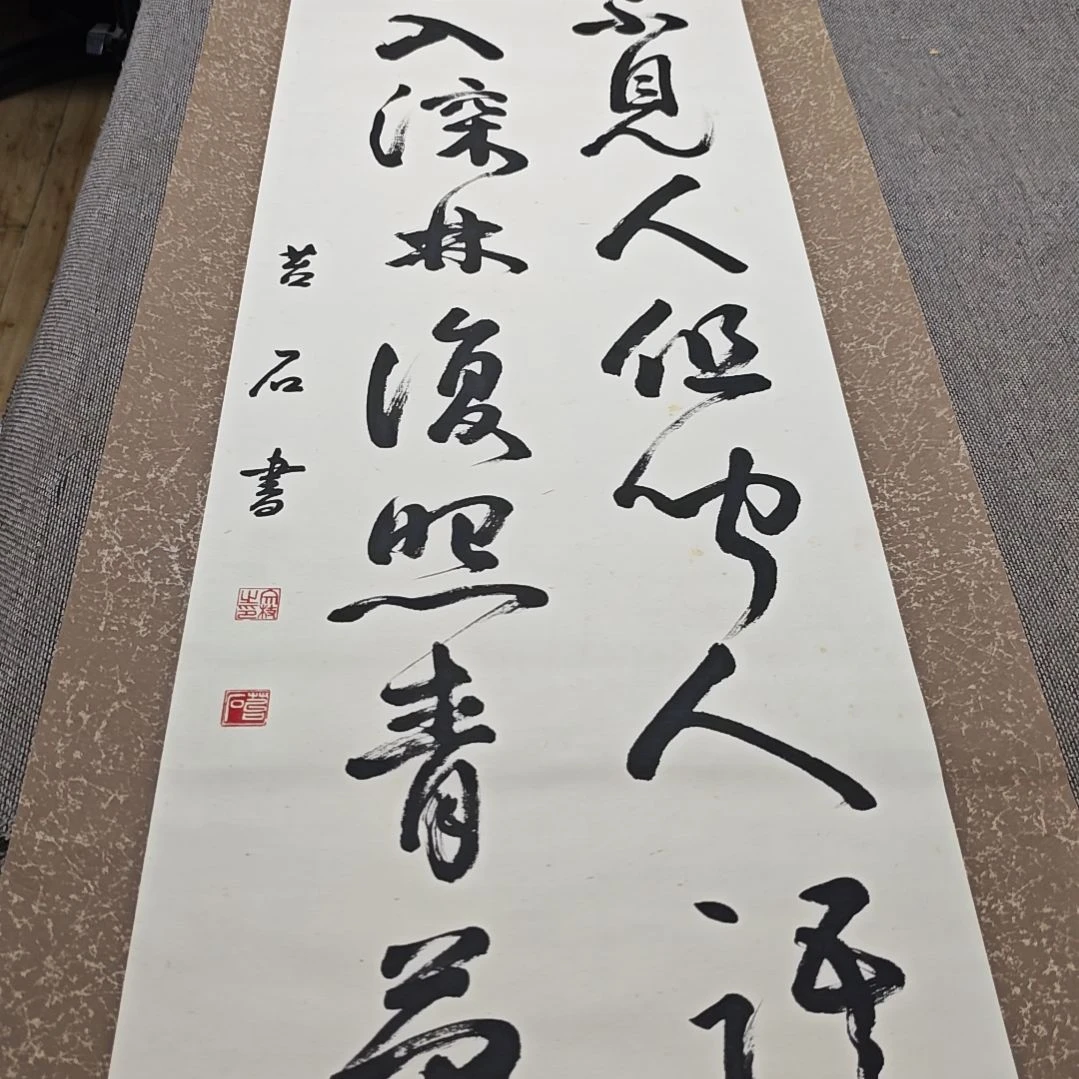 不見人但聞人語
入深林復照青苔
苔石書